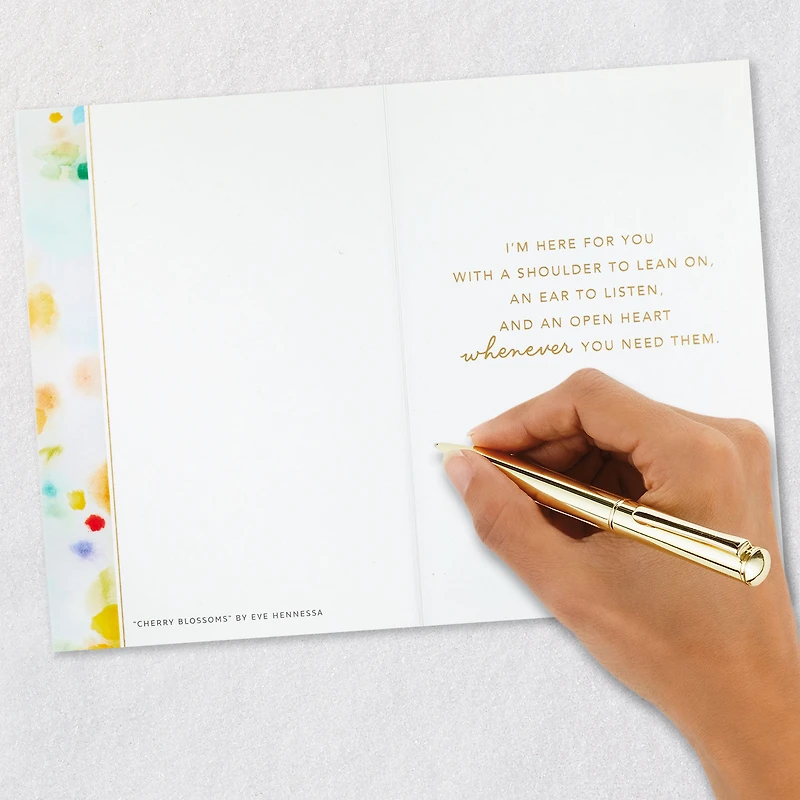 I'M HERE FOR YOU
WITH A SHOULDER TO LEAN ON,
AN EAR TO LISTEN,
AND AN OPEN HEART
whenever YOU NEED THEM.
"CHERRY BLOSSOMS" BY EVE HENNESSA